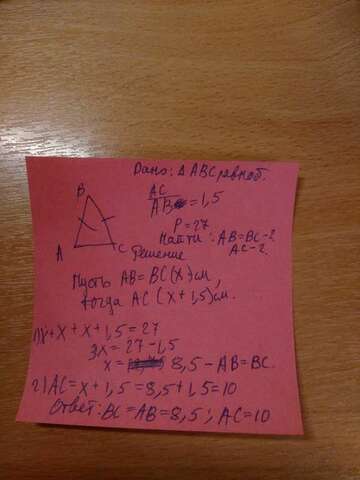 Дано: Δ ABC равноб.
B
AC
AB = 1,5
P = 27
Найти: AB=BC-?
A C Решение AC-?
Пусть AB = BC (x) см,
тогда AC (x + 1,5) см.
1) x + x + x + 1,5 = 27
3x = 27 - 1,5
x = 8,5 - AB = BC.
2) AC = x + 1,5 = 8,5 + 1,5 = 10
Ответ: BC = AB = 8,5 ; AC = 10